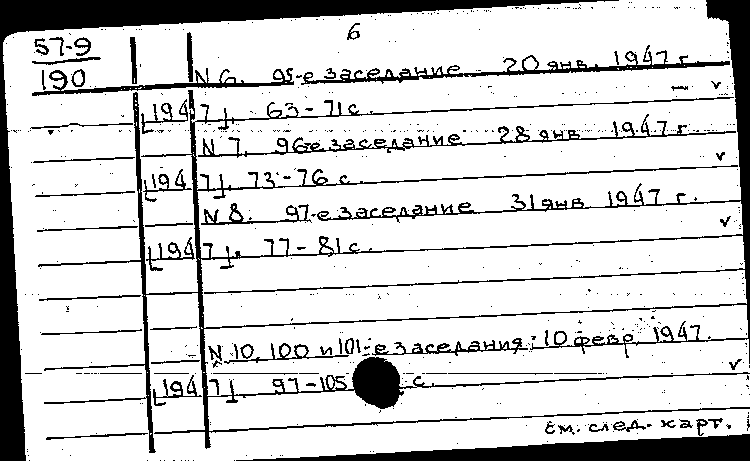 6
57-9
190
N 6. 95-е заседание 20 янв. 1947 г.
[1947]. 63-71 с.
N 7. 96-е заседание 28 янв 1947 г
[1947]. 73-76 с.
N 8. 97-е заседание 31 янв 1947 г.
[1947]. 77-81 с.
N 10. 100 и 101-е заседания: 10 февр. 1947.
[1947]. 97-105 с.
См. след. карт.